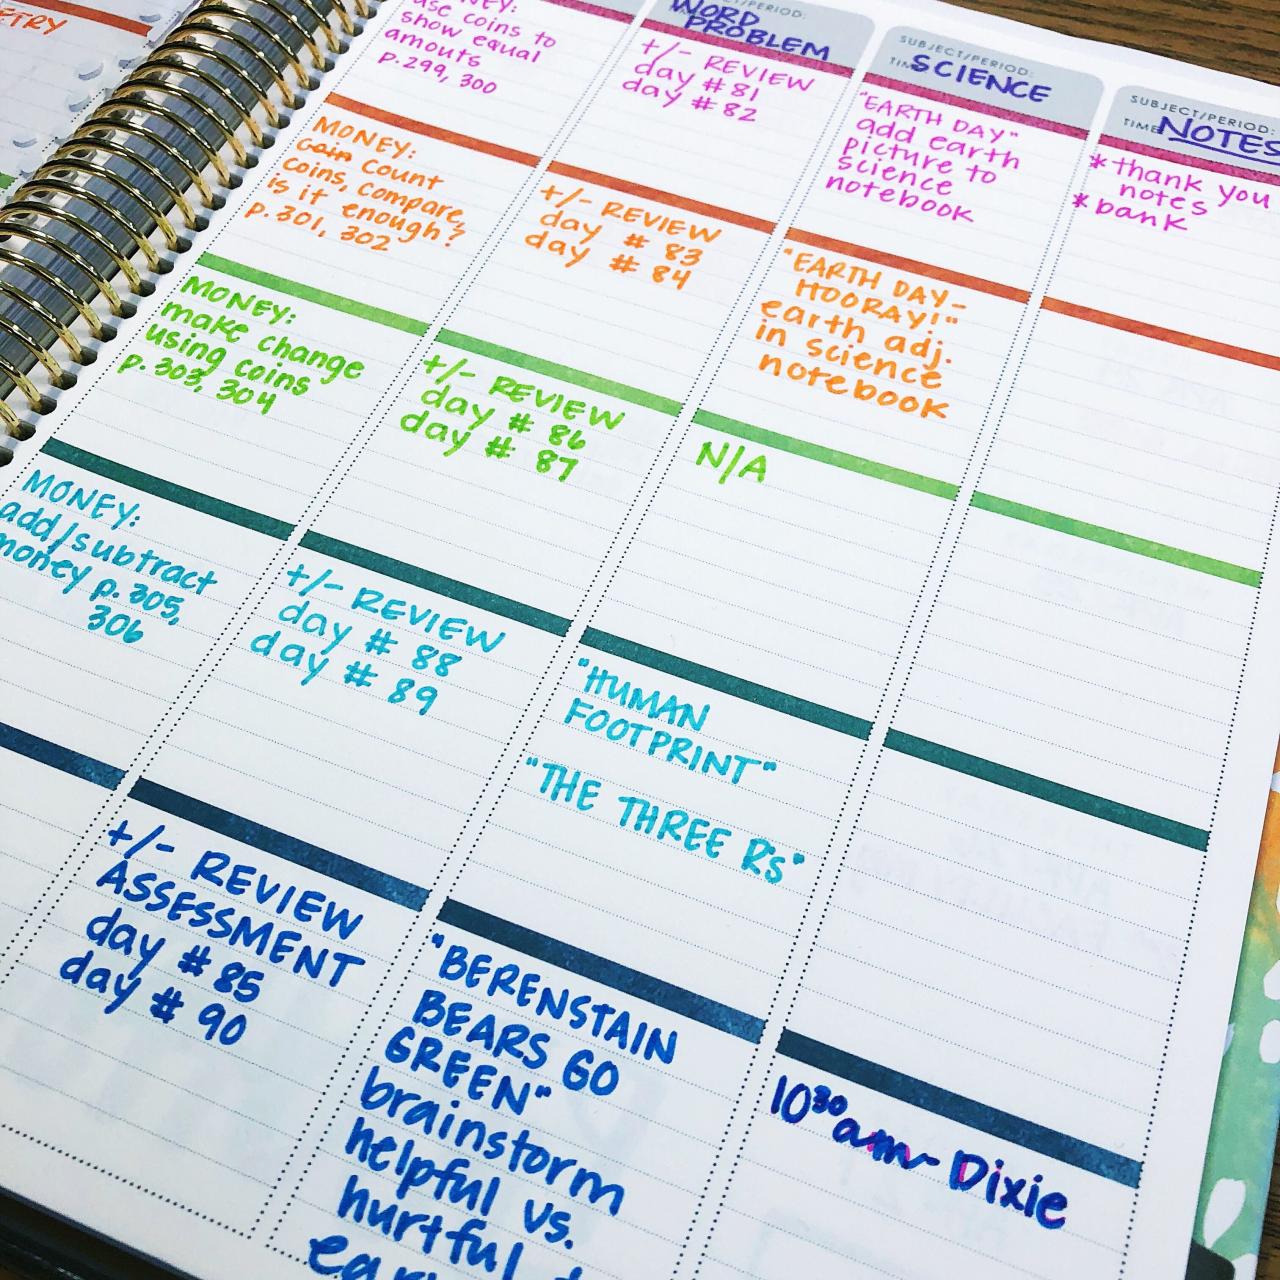 ETRY
use coins to
show equal
amouts
p.299, 300
MONEY:
Coin Count
coins, Compare,
is it enough?
p. 301, 302
MONEY:
make change
using coins
p. 303, 304
MONEY:
add/subtract
money p. 305,
306
PERIOD:
WORD
PROBLEM
+/- REVIEW
day #81
day #82
+/- REVIEW
day # 83
day # 84
+/- REVIEW
day # 86
day # 87
+/- REVIEW
day # 88
day # 89
+/- REVIEW
ASSESSMENT
day # 85
day # 90
SUBJECT/PERIOD:
SCIENCE
"EARTH DAY"
add earth
picture to
science
notebook
"EARTH DAY-
HOORAY!"
earth adj.
in science
notebook
N/A
"HUMAN
FOOTPRINT"
"THE THREE R's"
"BERENSTAIN
BEARS GO
GREEN"
brainstorm
helpful vs.
hurtful
SUBJECT/PERIOD:
TIME NOTES
*thank you
notes
*bank
10³⁰am- Dixie